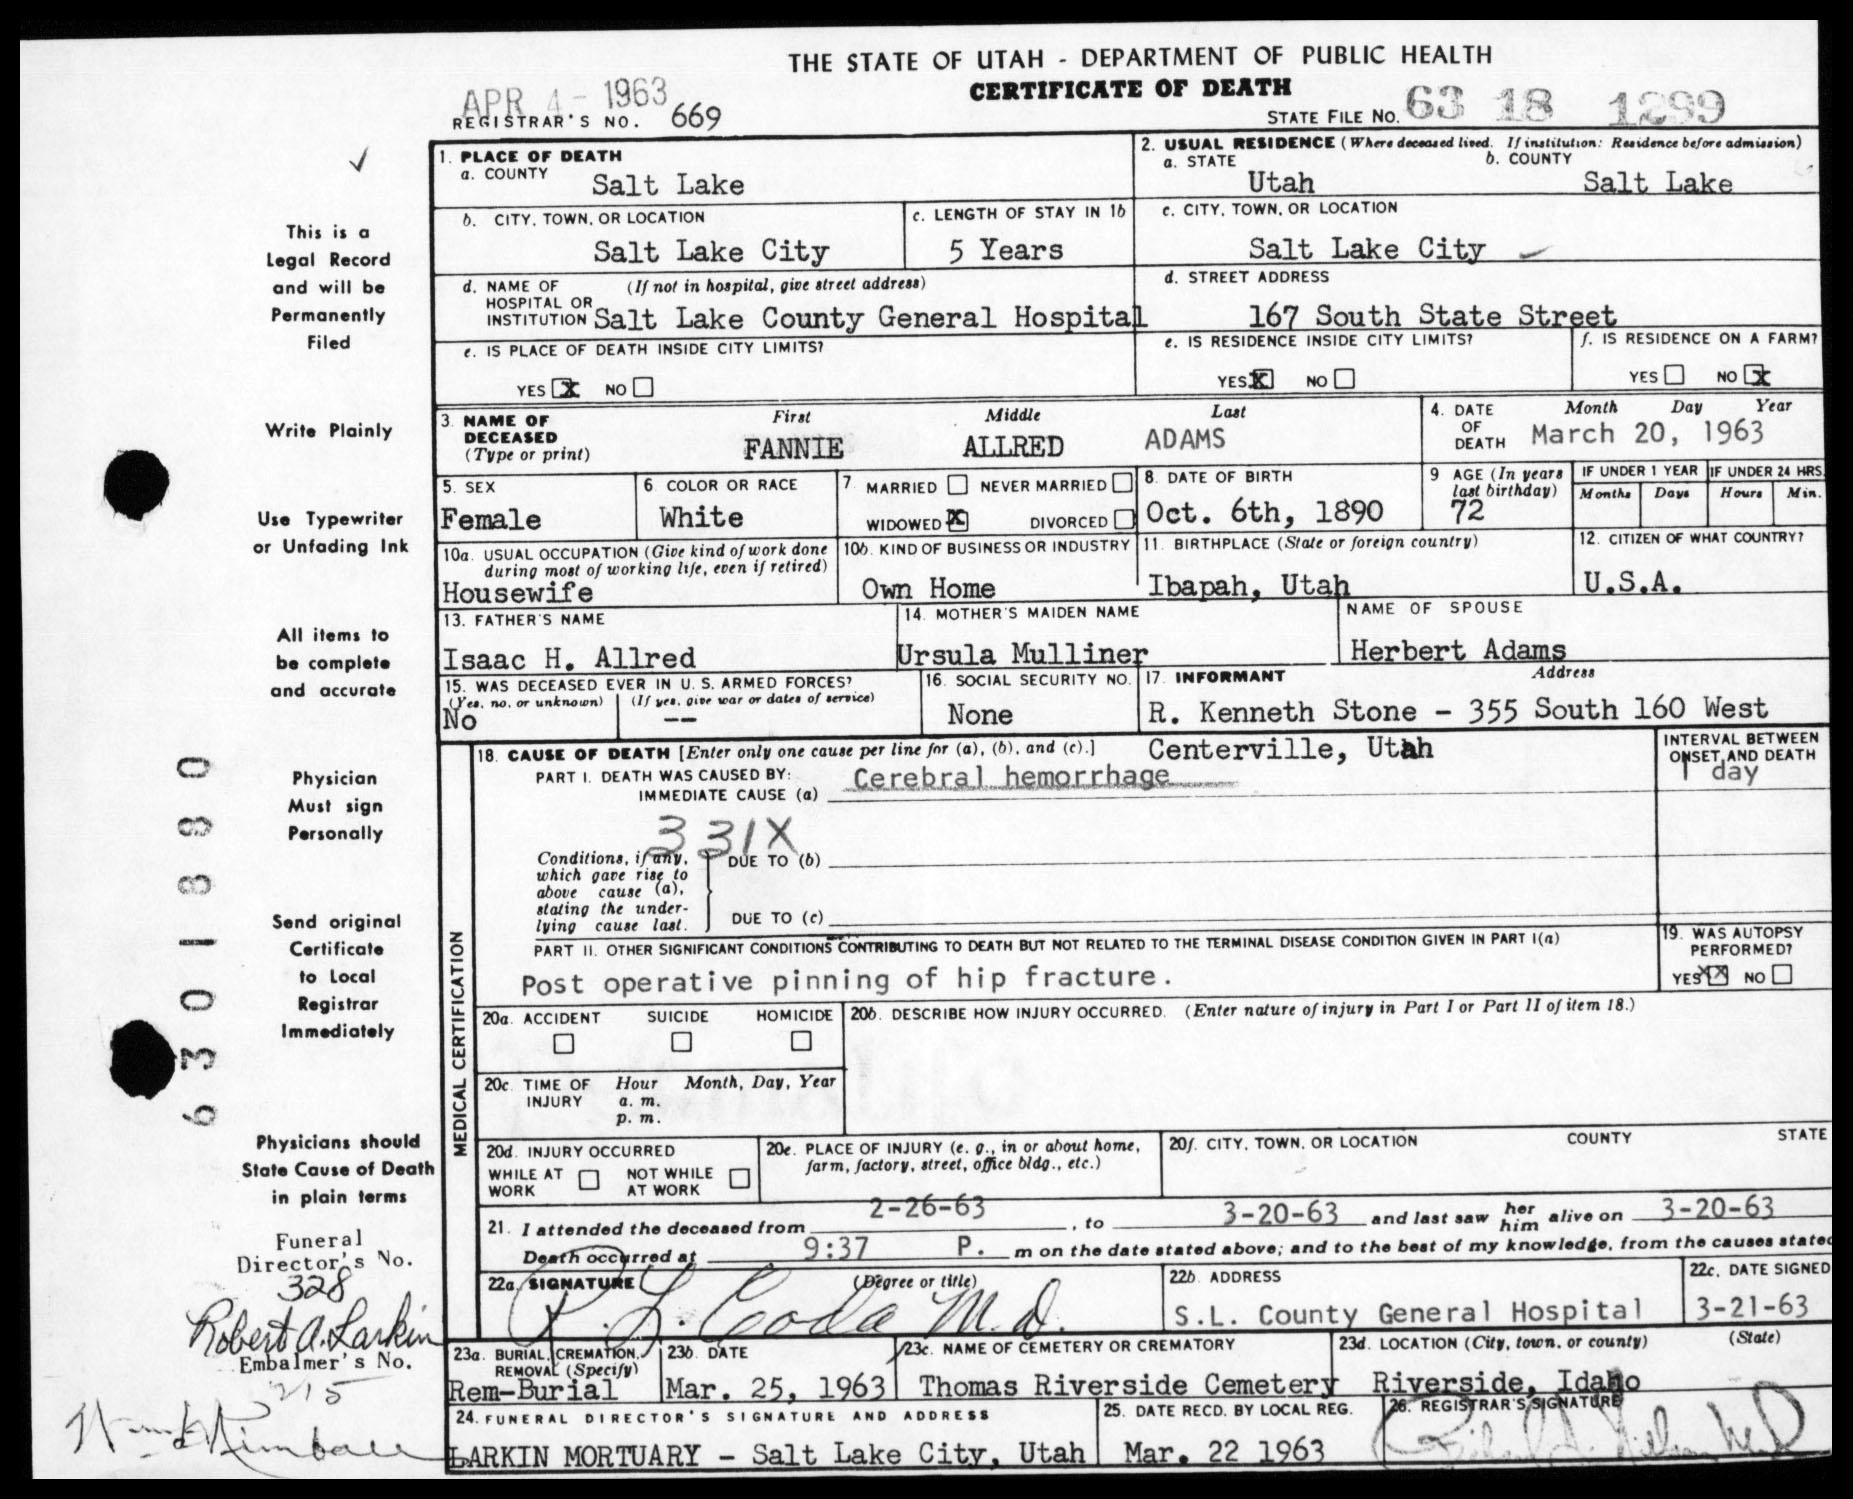 THE STATE OF UTAH - DEPARTMENT OF PUBLIC HEALTH
CERTIFICATE OF DEATH
APR 4 - 1963
REGISTRAR'S NO. 669
STATE FILE NO. 63 18 1299
This is a
Legal Record
and will be
Permanently
Filed
Write Plainly
Use Typewriter
or Unfading Ink
All items to
be complete
and accurate
Physician
Must sign
Personally
Send original
Certificate
to Local
Registrar
Immediately
Physicians should
State Cause of Death
in plain terms
Funeral
Director's No.
328
Robert A. Larkin
Embalmer's No.
215
6301880
1. PLACE OF DEATH
a. COUNTY
Salt Lake
2. USUAL RESIDENCE (Where deceased lived. If institution: Residence before admission)
a. STATE
Utah
b. COUNTY
Salt Lake
b. CITY, TOWN, OR LOCATION
Salt Lake City
c. LENGTH OF STAY IN 1b
5 Years
c. CITY, TOWN, OR LOCATION
Salt Lake City
d. NAME OF HOSPITAL OR INSTITUTION
(If not in hospital, give street address)
Salt Lake County General Hospital
d. STREET ADDRESS
167 South State Street
e. IS PLACE OF DEATH INSIDE CITY LIMITS?
YES X NO
e. IS RESIDENCE INSIDE CITY LIMITS?
YES X NO
f. IS RESIDENCE ON A FARM?
YES NO X
3. NAME OF DECEASED (Type or print)
First Middle Last
FANNIE ALLRED ADAMS
4. DATE OF DEATH
Month Day Year
March 20, 1963
5. SEX
Female
6. COLOR OR RACE
White
7. MARRIED NEVER MARRIED
WIDOWED X DIVORCED
8. DATE OF BIRTH
Oct. 6th, 1890
9 AGE (In years last birthday)
72
IF UNDER 1 YEAR
Months Days
IF UNDER 24 HRS.
Hours Min.
10a. USUAL OCCUPATION (Give kind of work done during most of working life, even if retired)
Housewife
10b. KIND OF BUSINESS OR INDUSTRY
Own Home
11. BIRTHPLACE (State or foreign country)
Ibapah, Utah
12. CITIZEN OF WHAT COUNTRY?
U.S.A.
13. FATHER'S NAME
Isaac H. Allred
14. MOTHER'S MAIDEN NAME
Ursula Mulliner
NAME OF SPOUSE
Herbert Adams
15. WAS DECEASED EVER IN U. S. ARMED FORCES?
(Yes, no, or unknown) (If yes, give war or dates of service)
No --
16. SOCIAL SECURITY NO.
None
17. INFORMANT Address
R. Kenneth Stone - 355 South 160 West
Centerville, Utah
MEDICAL CERTIFICATION
18. CAUSE OF DEATH [Enter only one cause per line for (a), (b), and (c).]
PART I. DEATH WAS CAUSED BY:
IMMEDIATE CAUSE (a)
Cerebral hemorrhage
INTERVAL BETWEEN ONSET AND DEATH
1 day
331X
Conditions, if any, which gave rise to above cause (a), stating the underlying cause last.
DUE TO (b)
DUE TO (c)
PART II. OTHER SIGNIFICANT CONDITIONS CONTRIBUTING TO DEATH BUT NOT RELATED TO THE TERMINAL DISEASE CONDITION GIVEN IN PART I(a)
Post operative pinning of hip fracture.
19. WAS AUTOPSY PERFORMED?
YES XX NO
20a. ACCIDENT SUICIDE HOMICIDE
20b. DESCRIBE HOW INJURY OCCURRED. (Enter nature of injury in Part I or Part II of item 18.)
20c. TIME OF INJURY
Hour Month, Day, Year
a. m.
p. m.
20d. INJURY OCCURRED
WHILE AT WORK NOT WHILE AT WORK
20e. PLACE OF INJURY (e. g., in or about home, farm, factory, street, office bldg., etc.)
20f. CITY, TOWN, OR LOCATION COUNTY STATE
21. I attended the deceased from 2-26-63, to 3-20-63 and last saw her him alive on 3-20-63
Death occurred at 9:37 P. m on the date stated above; and to the best of my knowledge, from the causes stated
22a. SIGNATURE (Degree or title)
P. L. Coda M.D.
22b. ADDRESS
S.L. County General Hospital
22c. DATE SIGNED
3-21-63
23a. BURIAL, CREMATION, REMOVAL (Specify)
Rem-Burial
23b. DATE
Mar. 25, 1963
23c. NAME OF CEMETERY OR CREMATORY
Thomas Riverside Cemetery
23d. LOCATION (City, town, or county) (State)
Riverside, Idaho
24. FUNERAL DIRECTOR'S SIGNATURE AND ADDRESS
LARKIN MORTUARY - Salt Lake City, Utah
25. DATE RECD. BY LOCAL REG.
Mar. 22 1963
26. REGISTRAR'S SIGNATURE